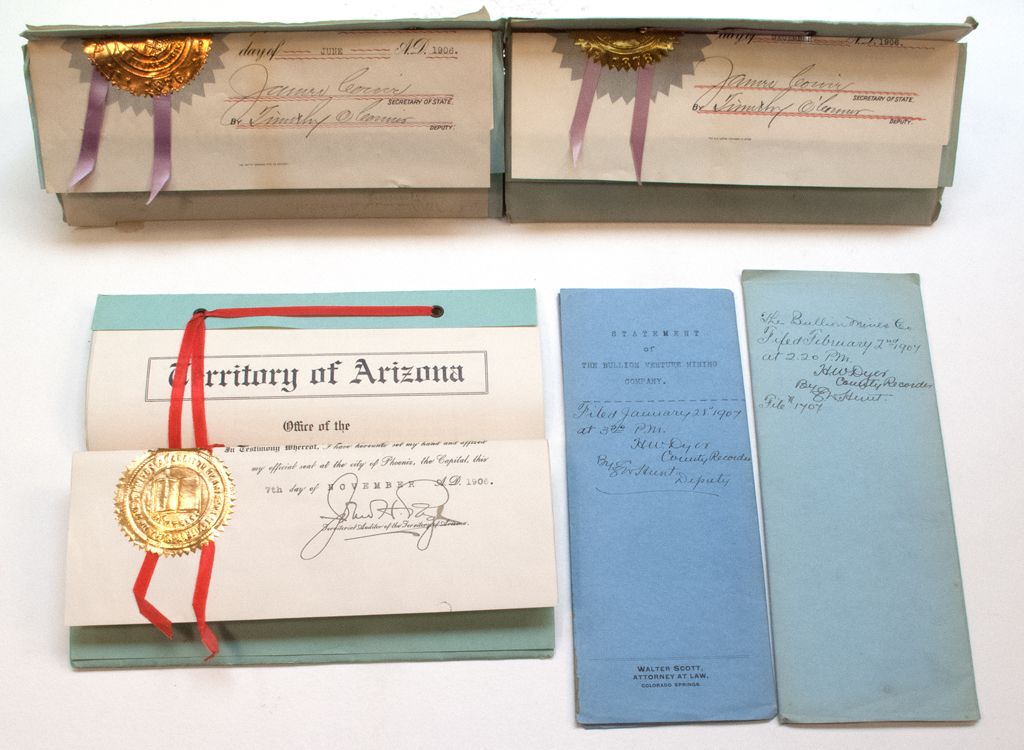 day of JUNE A.D. 1906.
James Cowie
SECRETARY OF STATE.
By Timothy O'Connor
DEPUTY.
day of A.D. 1906.
James Cowie
SECRETARY OF STATE.
By Timothy O'Connor
DEPUTY.
Territory of Arizona
Office of the
In Testimony Whereof, I have hereunto set my hand and affixed
my official seal at the city of Phoenix, the Capital, this
7th day of NOVEMBER A.D. 1906.
John H. Page
Territorial Auditor of the Territory of Arizona.
STATEMENT
of
THE BULLION VENTURE MINING
COMPANY.
Filed January 28th 1907
at 3 P.M.
H W Dyer
County Recorder
By E W Hunt
Deputy
WALTER SCOTT,
ATTORNEY AT LAW,
COLORADO SPRINGS.
The Bullion Mines Co
Filed February 2nd 1907
at 2.20 P.M.
H W Dyer
County Recorder
By E W Hunt.
File # 1707